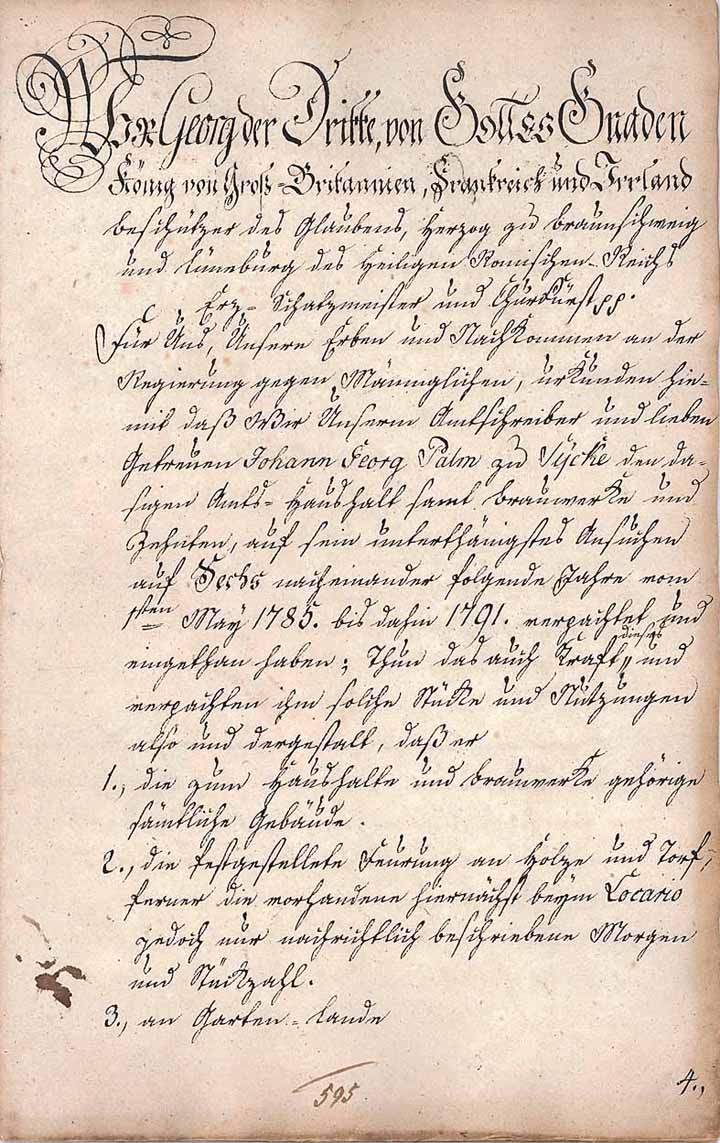 Wir Georg der Dritte, von Gottes Gnaden
König von Groß-Britannien, Frankreich und Irrland
beschützer des Glaubens, Herzog zu braunschweig
und Lüneburg des Heiligen Romischen-Reichs
Erz-Schatzmeister und Churfürst pp.
Für Uns, Unsere Erben und Nachkommen an der
Regierung gegen Männiglichen, urkunden hie-
mit daß Wir Unserm Amtschreiber und lieben
Getreuen Johann Georg Palm zu Sycke den da-
sigen Amts-Haushalt samt brauwerke und
Zehnten, auf sein unterthänigstes Ansuchen
auf Sechs nacheinander folgende Jahre vom
1sten May 1785. bis dahin 1791. verpachtet und
eingethan haben; Thun das auch Kraft dieses und
verpachten ihm solche Stücke und Nutzungen
also und dergestalt, daß er
1., die zum Haushalte und brauwerke gehörige
sämtliche Gebäude.
2., die festgestellete Feurung an Holze und Torf,
ferner die vorhandene hiernächst beym Locario
jedoch nur nachrichtlich beschriebene Morgen
und Stückzahl.
3., an Garten-Lande
595
4.,